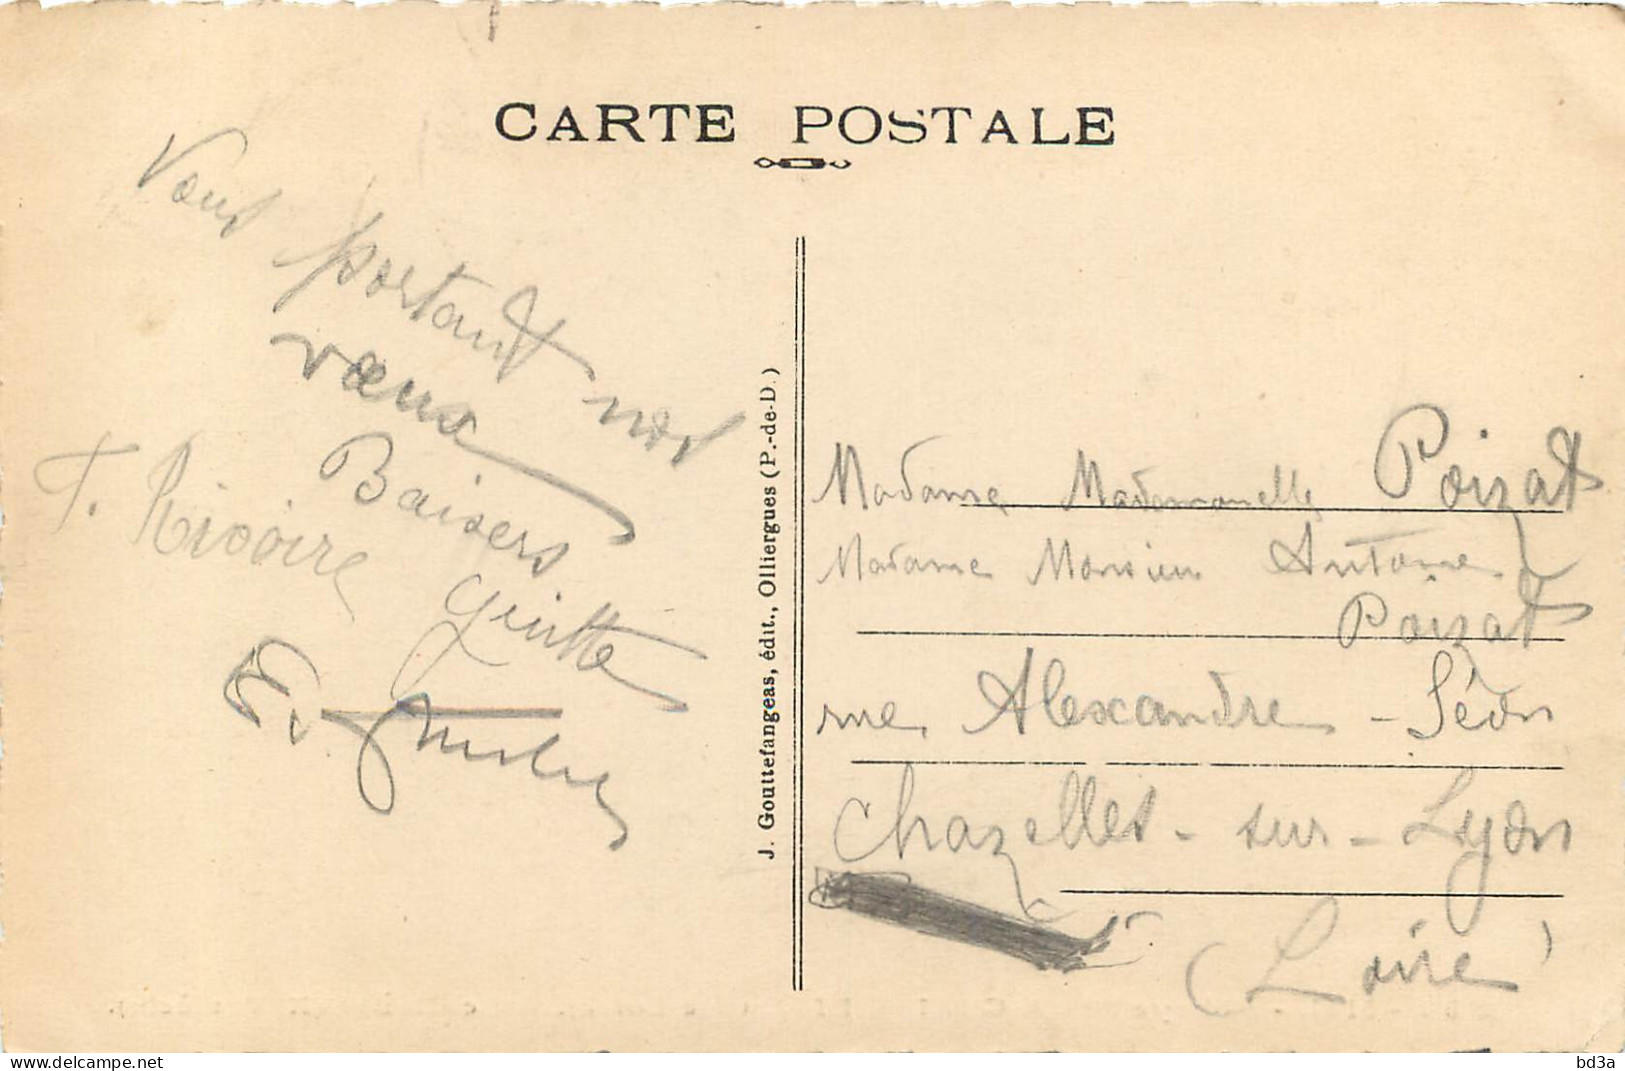 CARTE POSTALE
Vous portant nos
vœux
Baisers
F. Rivoire
J. Gouttefangeas, édit., Olliergues (P.-de-D.)
Madame Mademoiselle Poizat
Madame Monsieur Antoine
Poizat
rue Alexandre - Séon
Chazelles - sur - Lyon
(Loire)
www.delcampe.net
bd3a